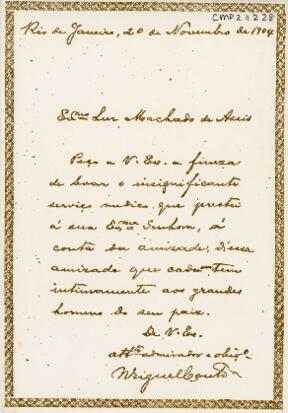 CMP 2.1.2.28
Rio de Janeiro, 20 de Novembro de 1904
Exmo Snr Machado de Assis
Peço a V. Ex. a fineza
de levar o insignificante
serviço medico, que prestei
á sua Exma Senhora, á
conta da amizade, d'essa
amizade que cada um tem
intimamente aos grandes
homens do seu paiz.
De V. Ex.
atto admirador e obrigo
Miguel Couto